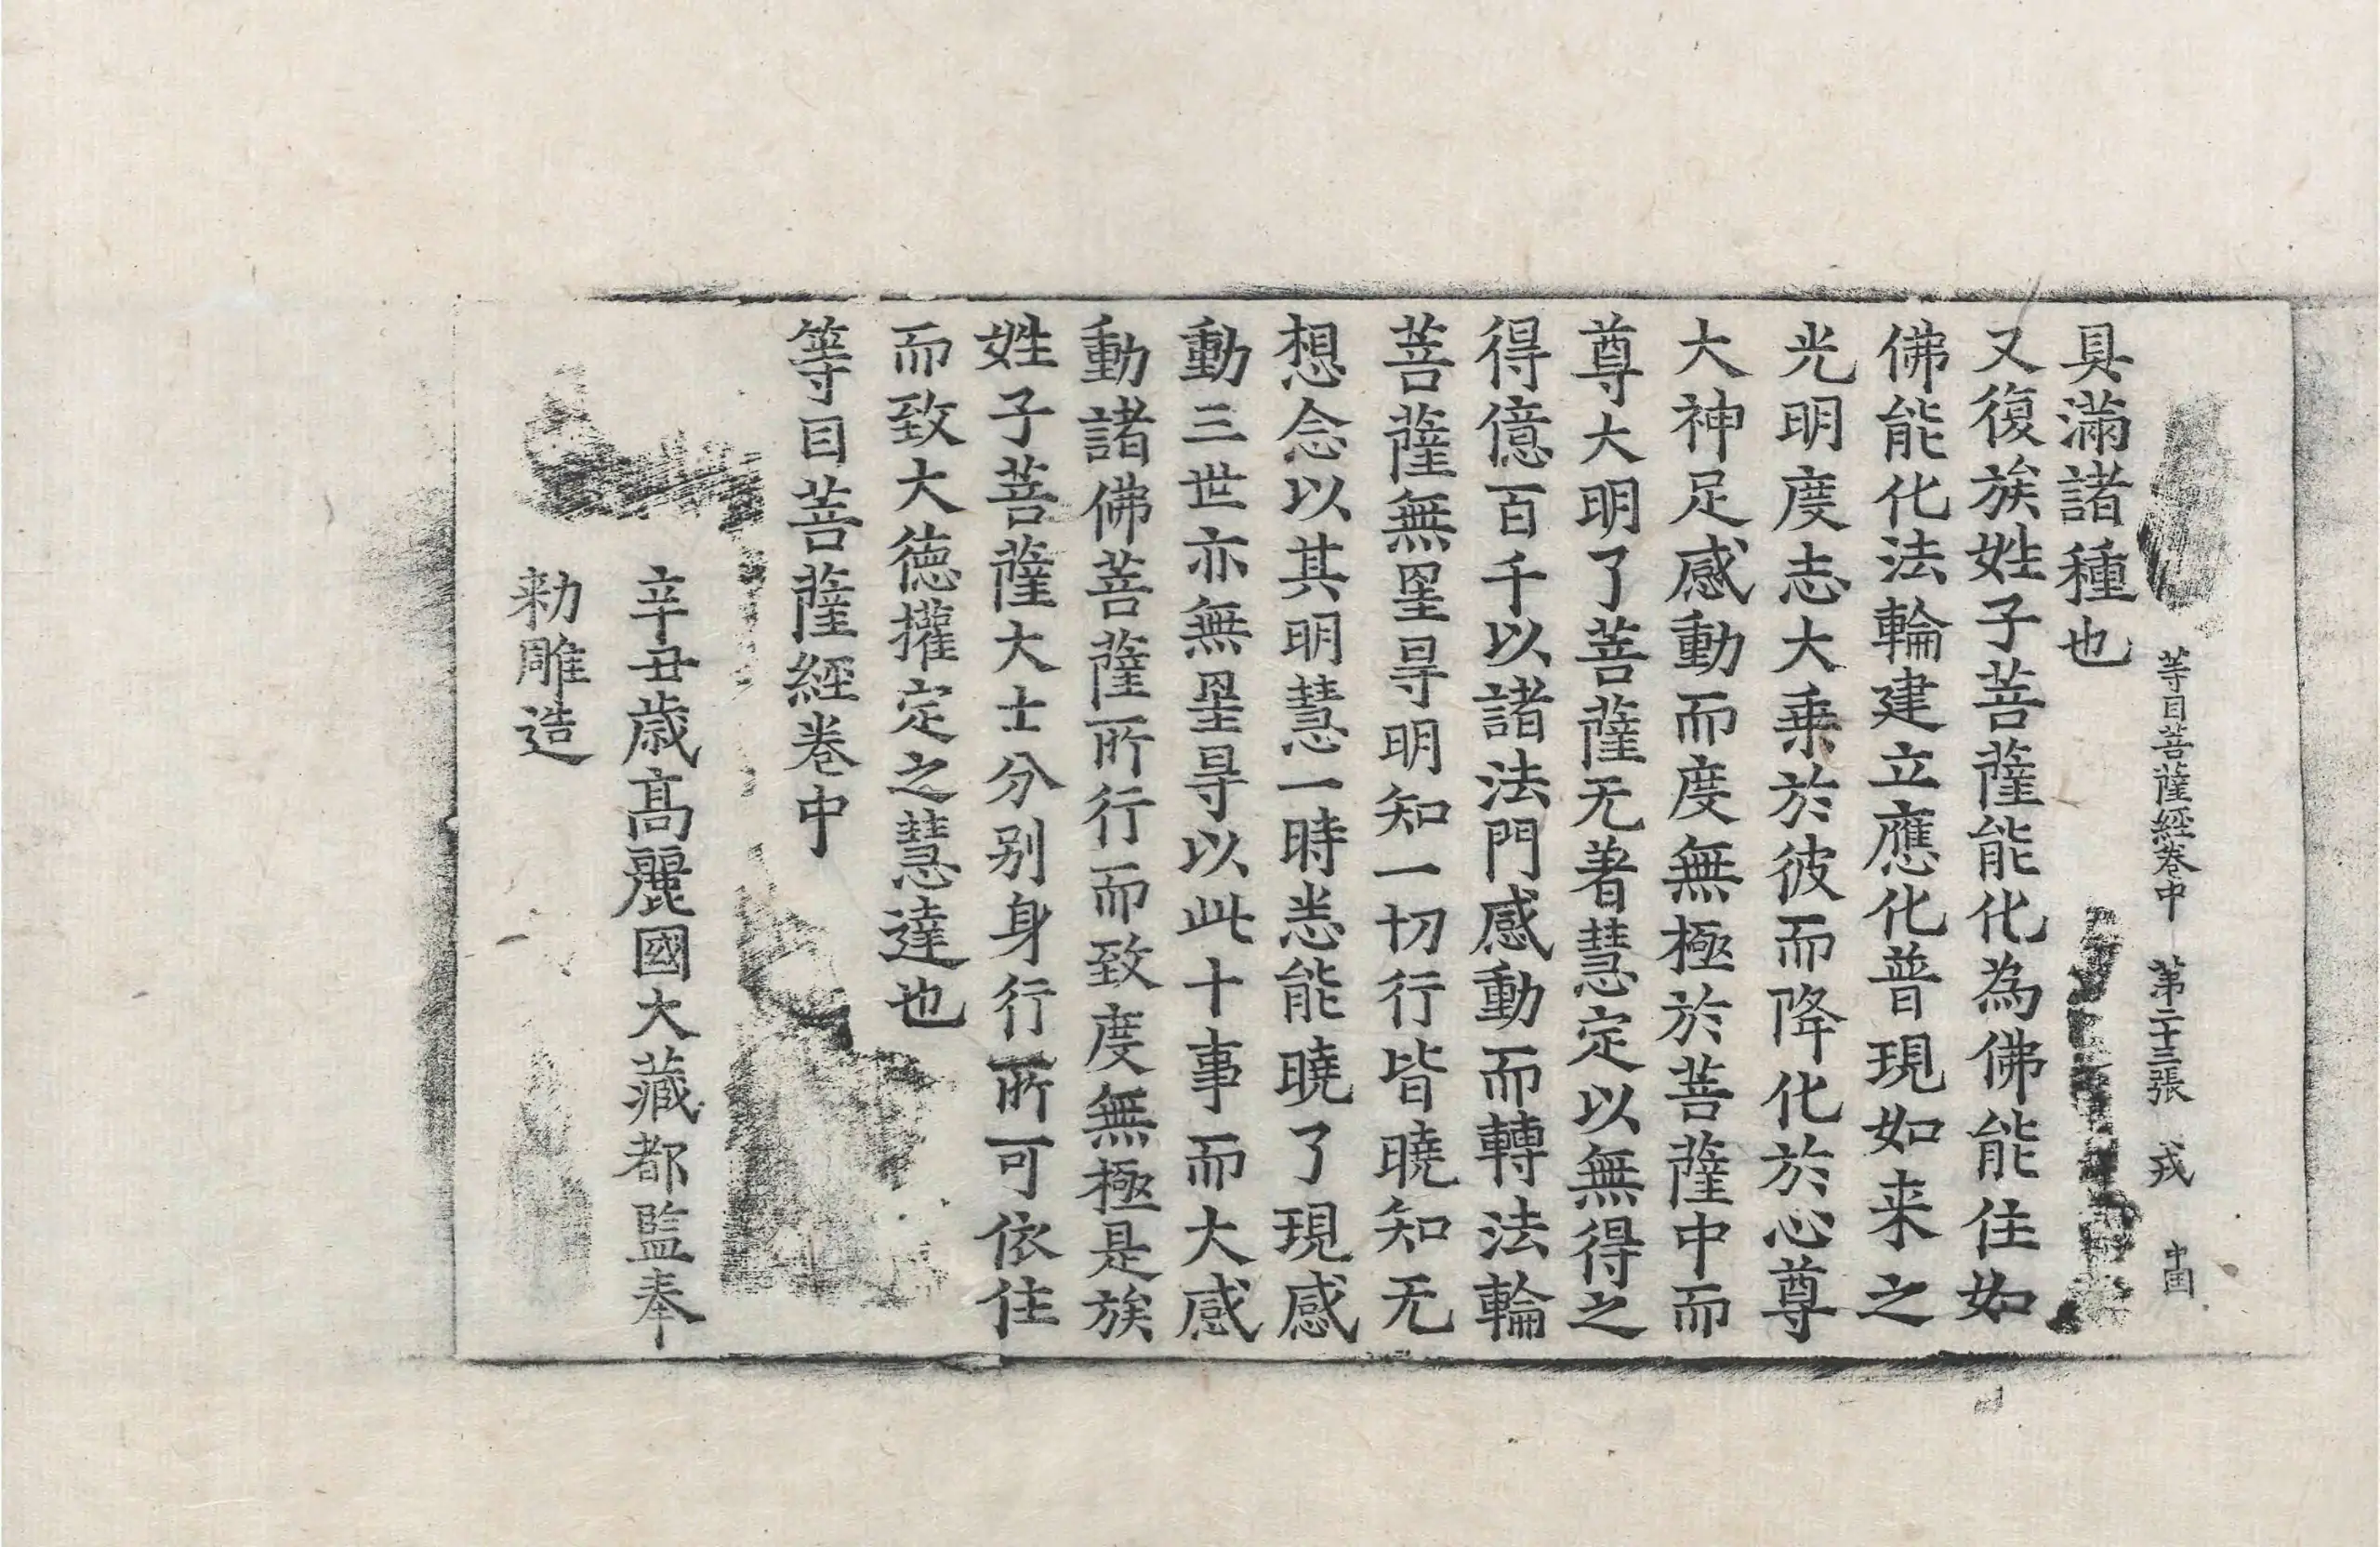 等目菩薩經卷中 第二十三張 戎
具滿諸種也
又復族姓子菩薩能化為佛能住如
佛能化法輪建立應化普現如来之
光明度志大乘於彼而降化於心尊
大神足感動而度無極於菩薩中而
尊大明了菩薩无著慧定以無得之
得億百千以諸法門感動而轉法輪
菩薩無罣㝵明知一切行皆曉知无
想念以其明慧一時悉能曉了現感
動三世亦無罣㝵以此十事而大感
動諸佛菩薩所行而致度無極是族
姓子菩薩大士分別身行所可依住
而致大德㩲定之慧達也
等目菩薩經卷中
辛丑歲高麗國大藏都監奉
勑雕造